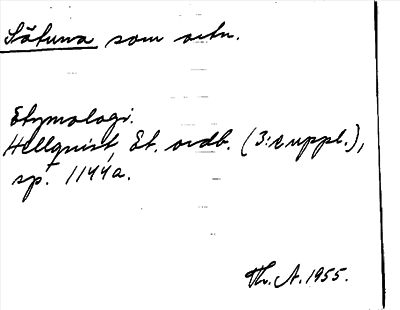 Såtuna som ortn.
Etymologi.
Hellquist, Et. ordb. (3:e uppl.),
sp. 1144a.
Th. A. 1955.